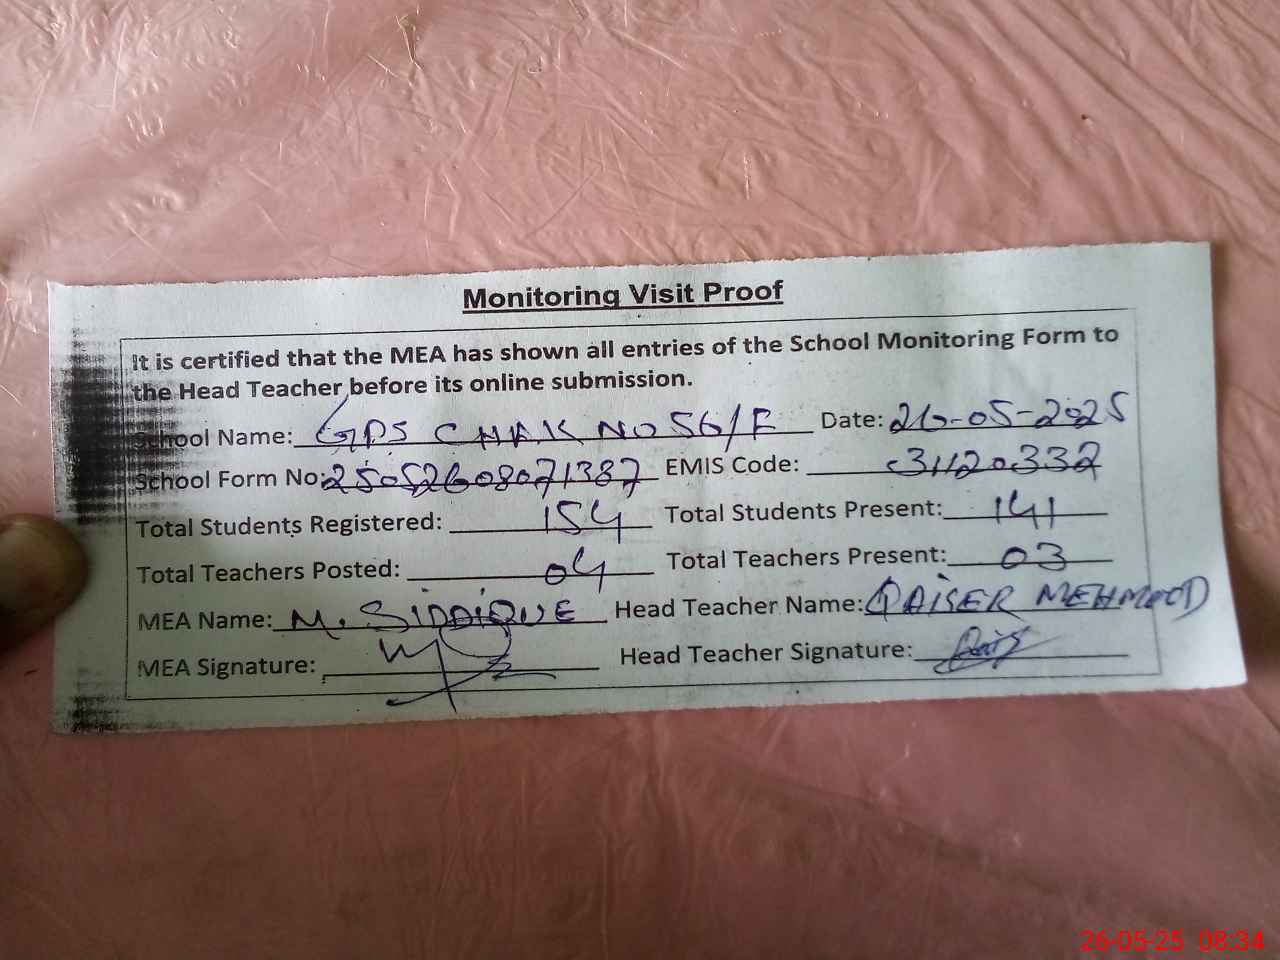 Monitoring Visit Proof
It is certified that the MEA has shown all entries of the School Monitoring Form to
the Head Teacher before its online submission.
School Name: GPS CHAK NO 56/F Date: 26-05-2025
School Form No: 25052608071387 EMIS Code: 31120332
Total Students Registered: 154 Total Students Present: 141
Total Teachers Posted: 04 Total Teachers Present: 03
MEA Name: M. SIDDIQUE Head Teacher Name: QAISER MEHMOOD
MEA Signature: Head Teacher Signature: Qais
26-05-25 08:34